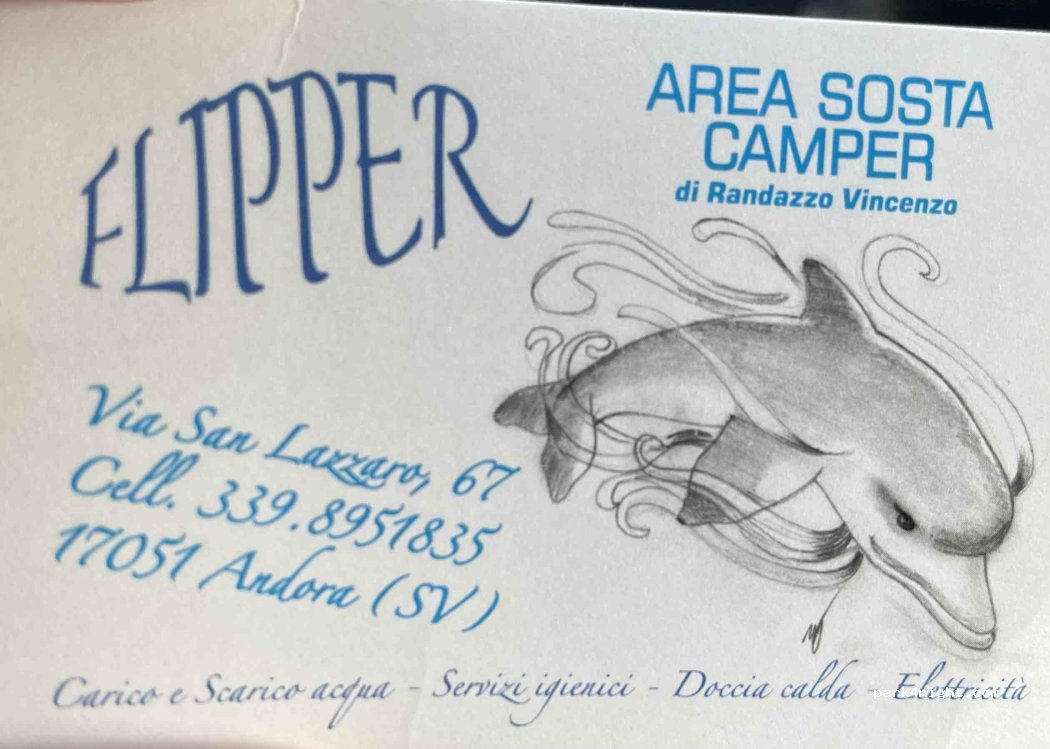 FLIPPER
AREA SOSTA
CAMPER
di Randazzo Vincenzo
Via San Lazzaro, 67
Cell. 339.8951835
17051 Andora (SV)
Carico e Scarico acqua - Servizi igienici - Doccia calda - Elettricità
park4night.com